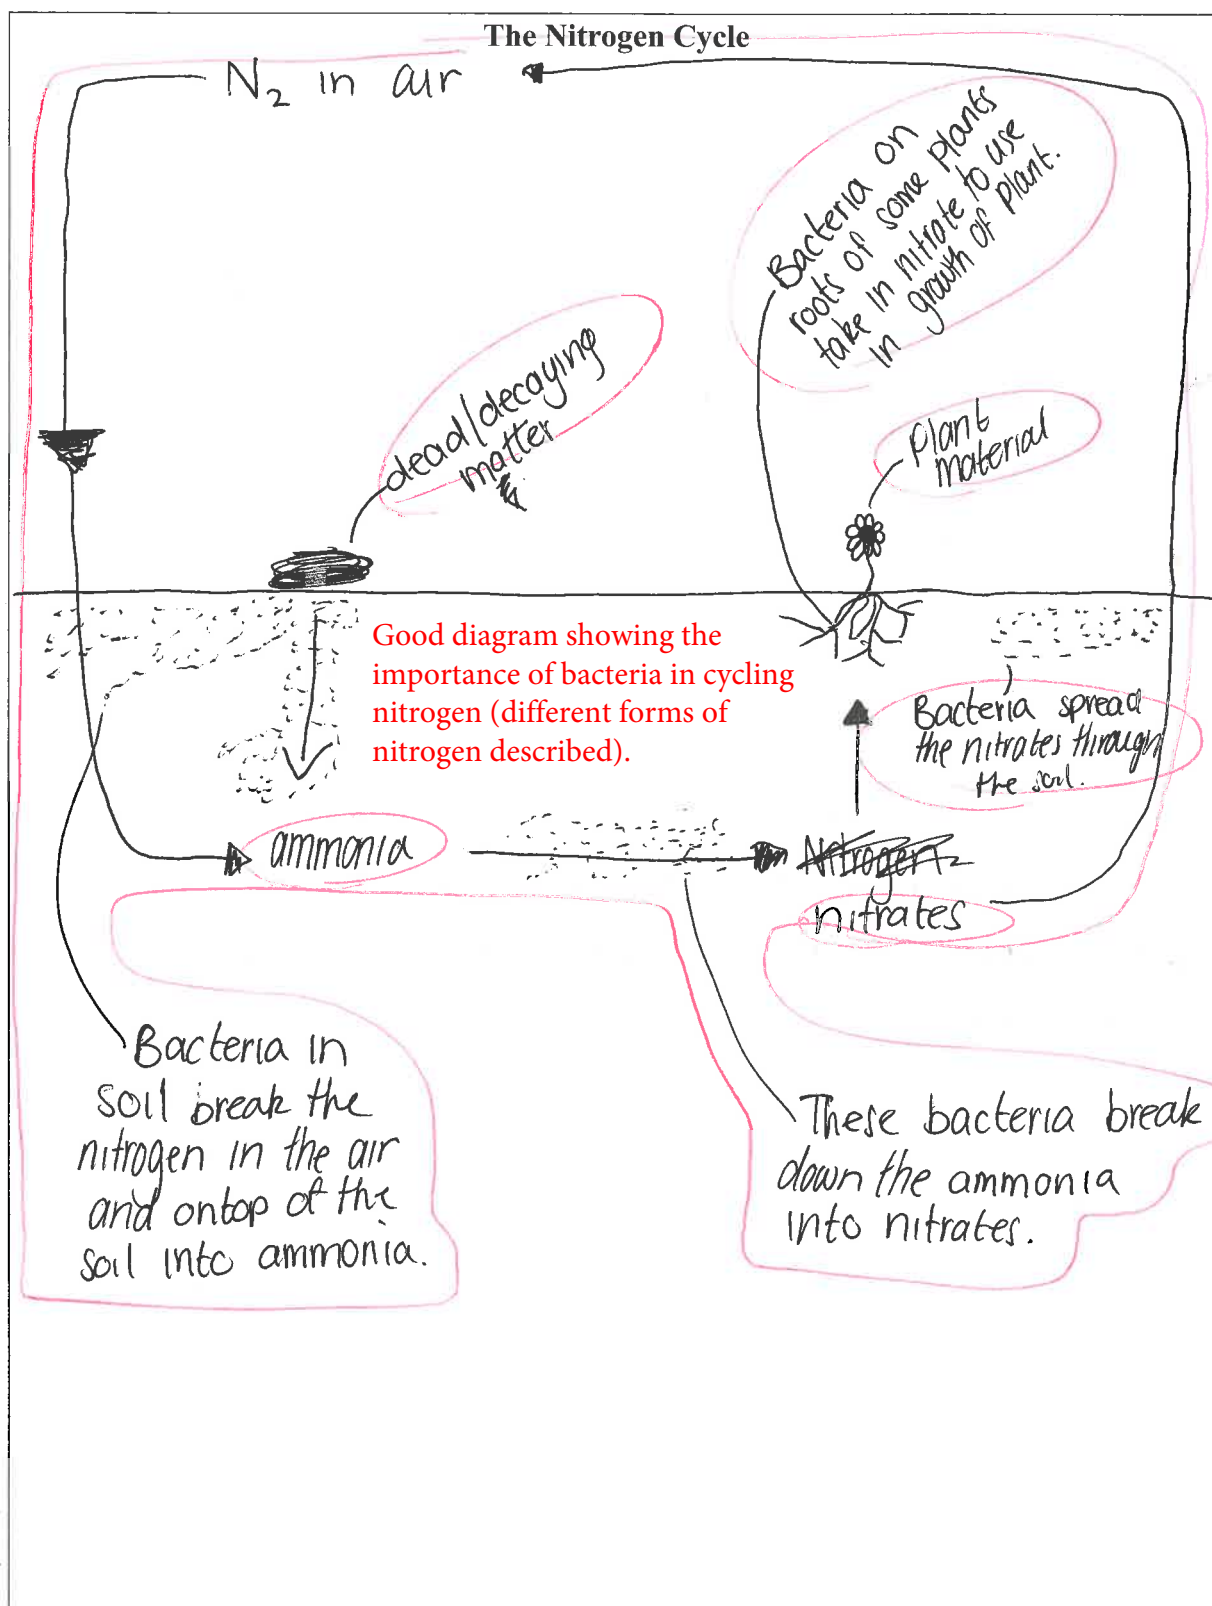 The Nitrogen Cycle
N₂ in air
Bacteria on
roots of some plants
take in nitrate to use
in growth of plant.
dead/decaying
matter
plant
material
Good diagram showing the
importance of bacteria in cycling
nitrogen (different forms of
nitrogen described).
Bacteria spread
the nitrates through
the soil.
ammonia
Nitrogen
nitrates
Bacteria in
soil break the
nitrogen in the air
and ontop of the
soil into ammonia.
These bacteria break
down the ammonia
into nitrates.